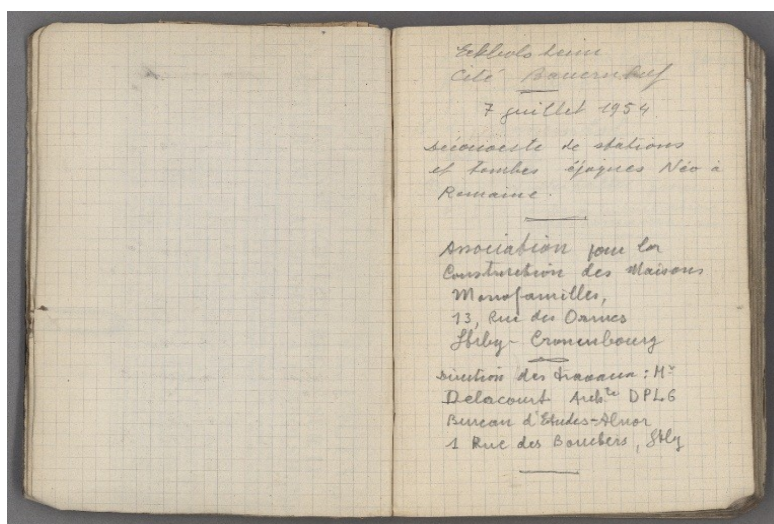 Eckbolsheim
Cité Bauernhof
7 juillet 1954
Découverte de stations
et tombes époques Néo à
Romaine.
Association pour la
Construction des Maisons
Monofamilles,
13, Rue des Ormes
Strbg-Cronenbourg
Direction des travaux : Mr
Delacourt Archte DPLG
Bureau d'Etudes-Alnor
1 Rue des Bouchers, Stbg